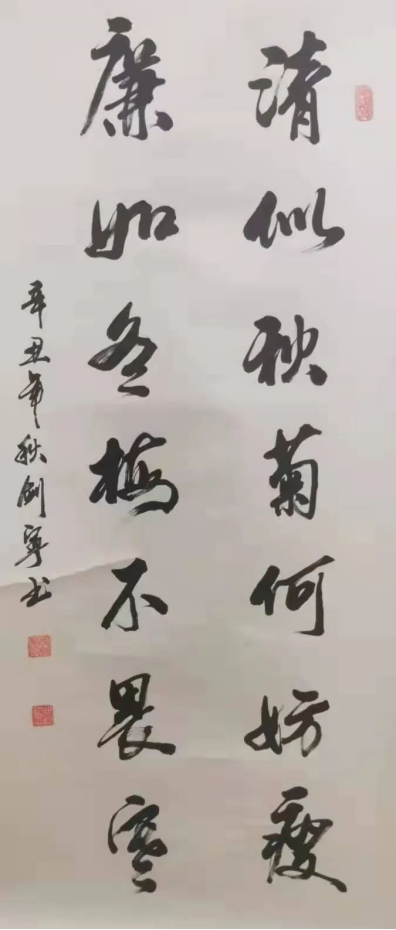 清似秋菊何妨瘦
廉如冬梅不畏寒
辛丑年秋剑宁书